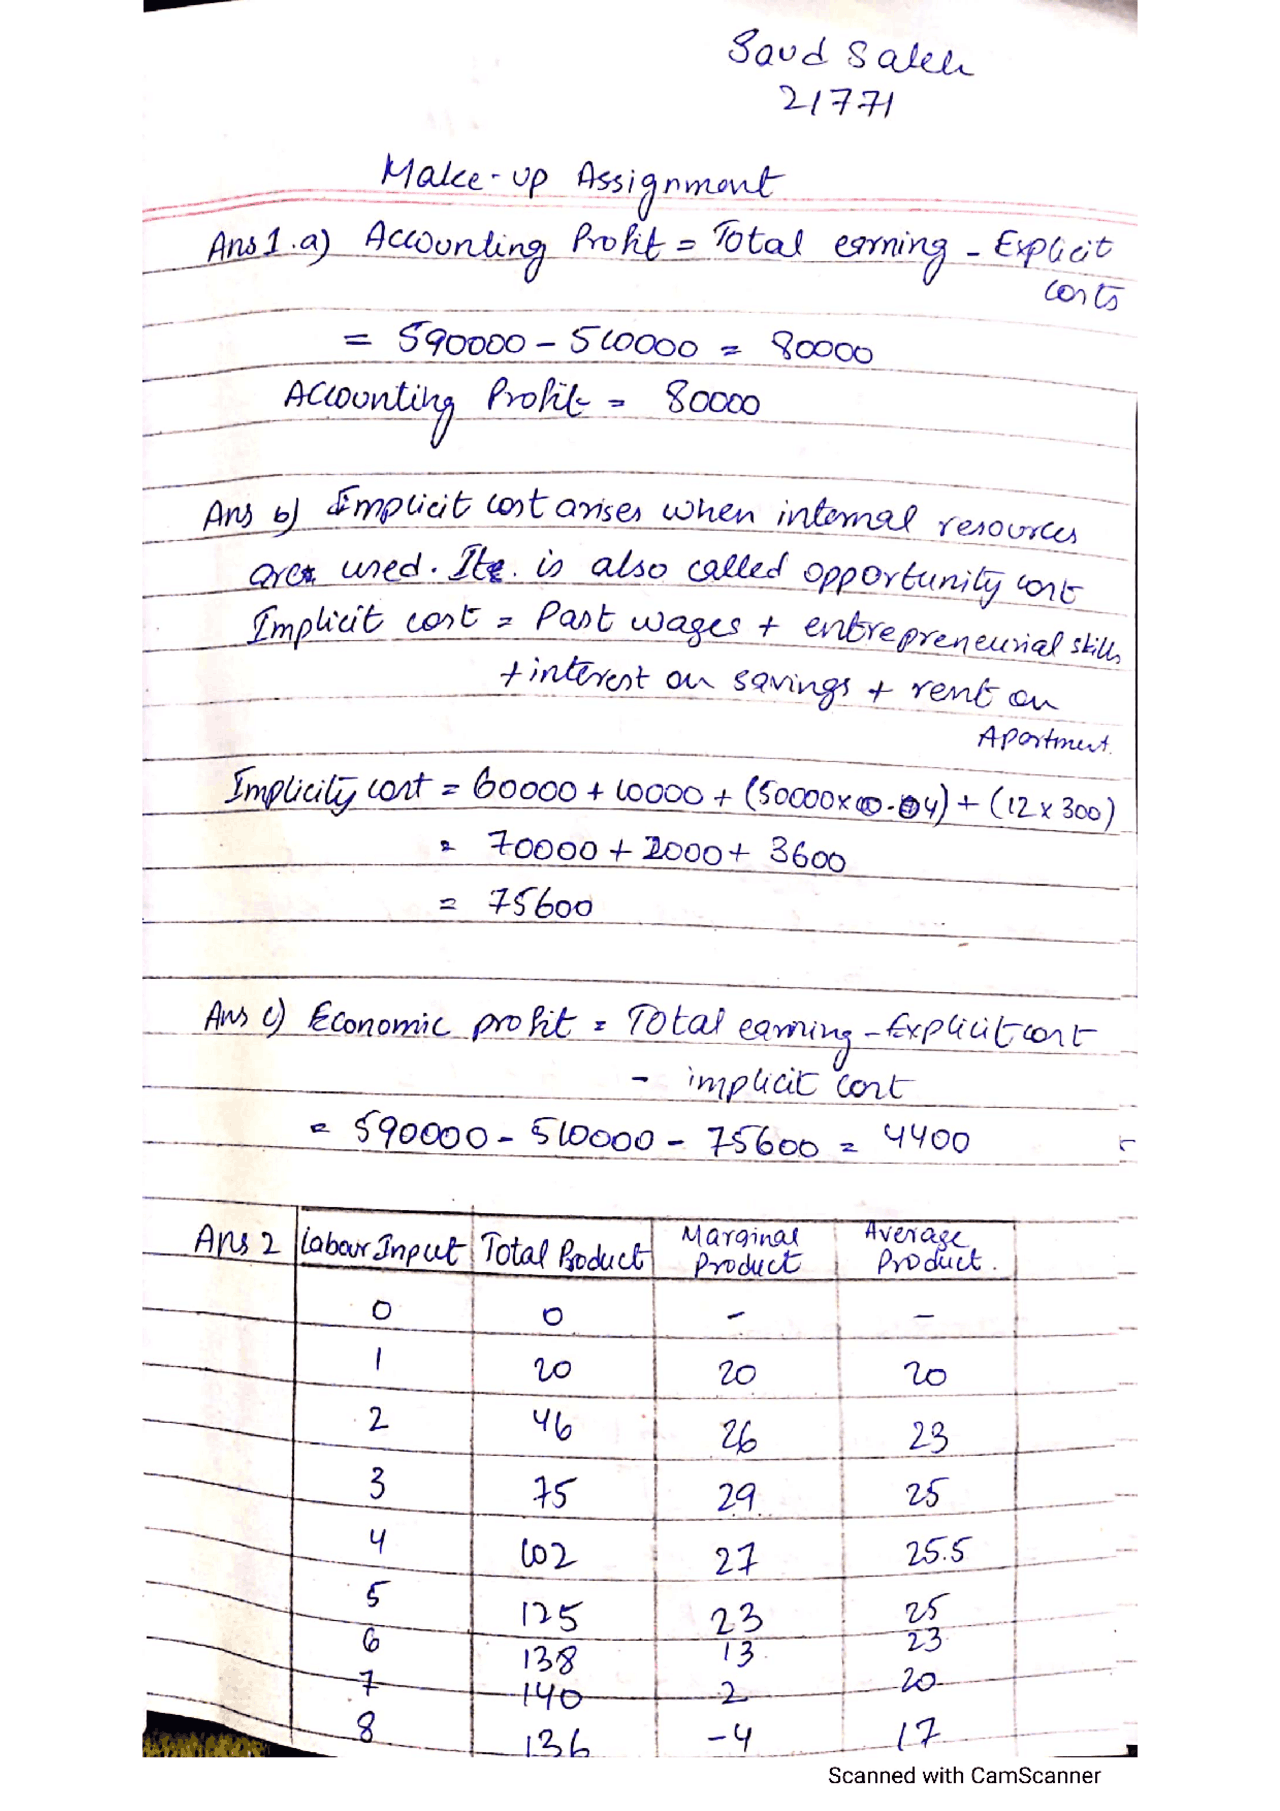 Saud Saleh
21771
Make-up Assignment
Ans 1.a) Accounting Profit = Total earning - Explicit
costs
= 590000 - 510000 = 80000
Accounting Profit = 80000
Ans b) Implicit cost arises when internal resources
are used. It is also called opportunity cost
Implicit cost = Past wages + entrepreneurial skills
+ interest on savings + rent on
Apartment.
Implicity cost = 60000 + 10000 + (50000 x 0.04) + (12 x 300)
= 70000 + 2000 + 3600
= 75600
Ans c) Economic profit = Total earning - Explicit cost
- implicit cost
= 590000 - 510000 - 75600 = 4400
Ans 2 Labour Input Total Product Marginal Product Average Product.
0 0 - -
1 20 20 20
2 46 26 23
3 75 29 25
4 102 27 25.5
5 125 23 25
6 138 13 23
7 140 2 20
8 136 -4 17
Scanned with CamScanner